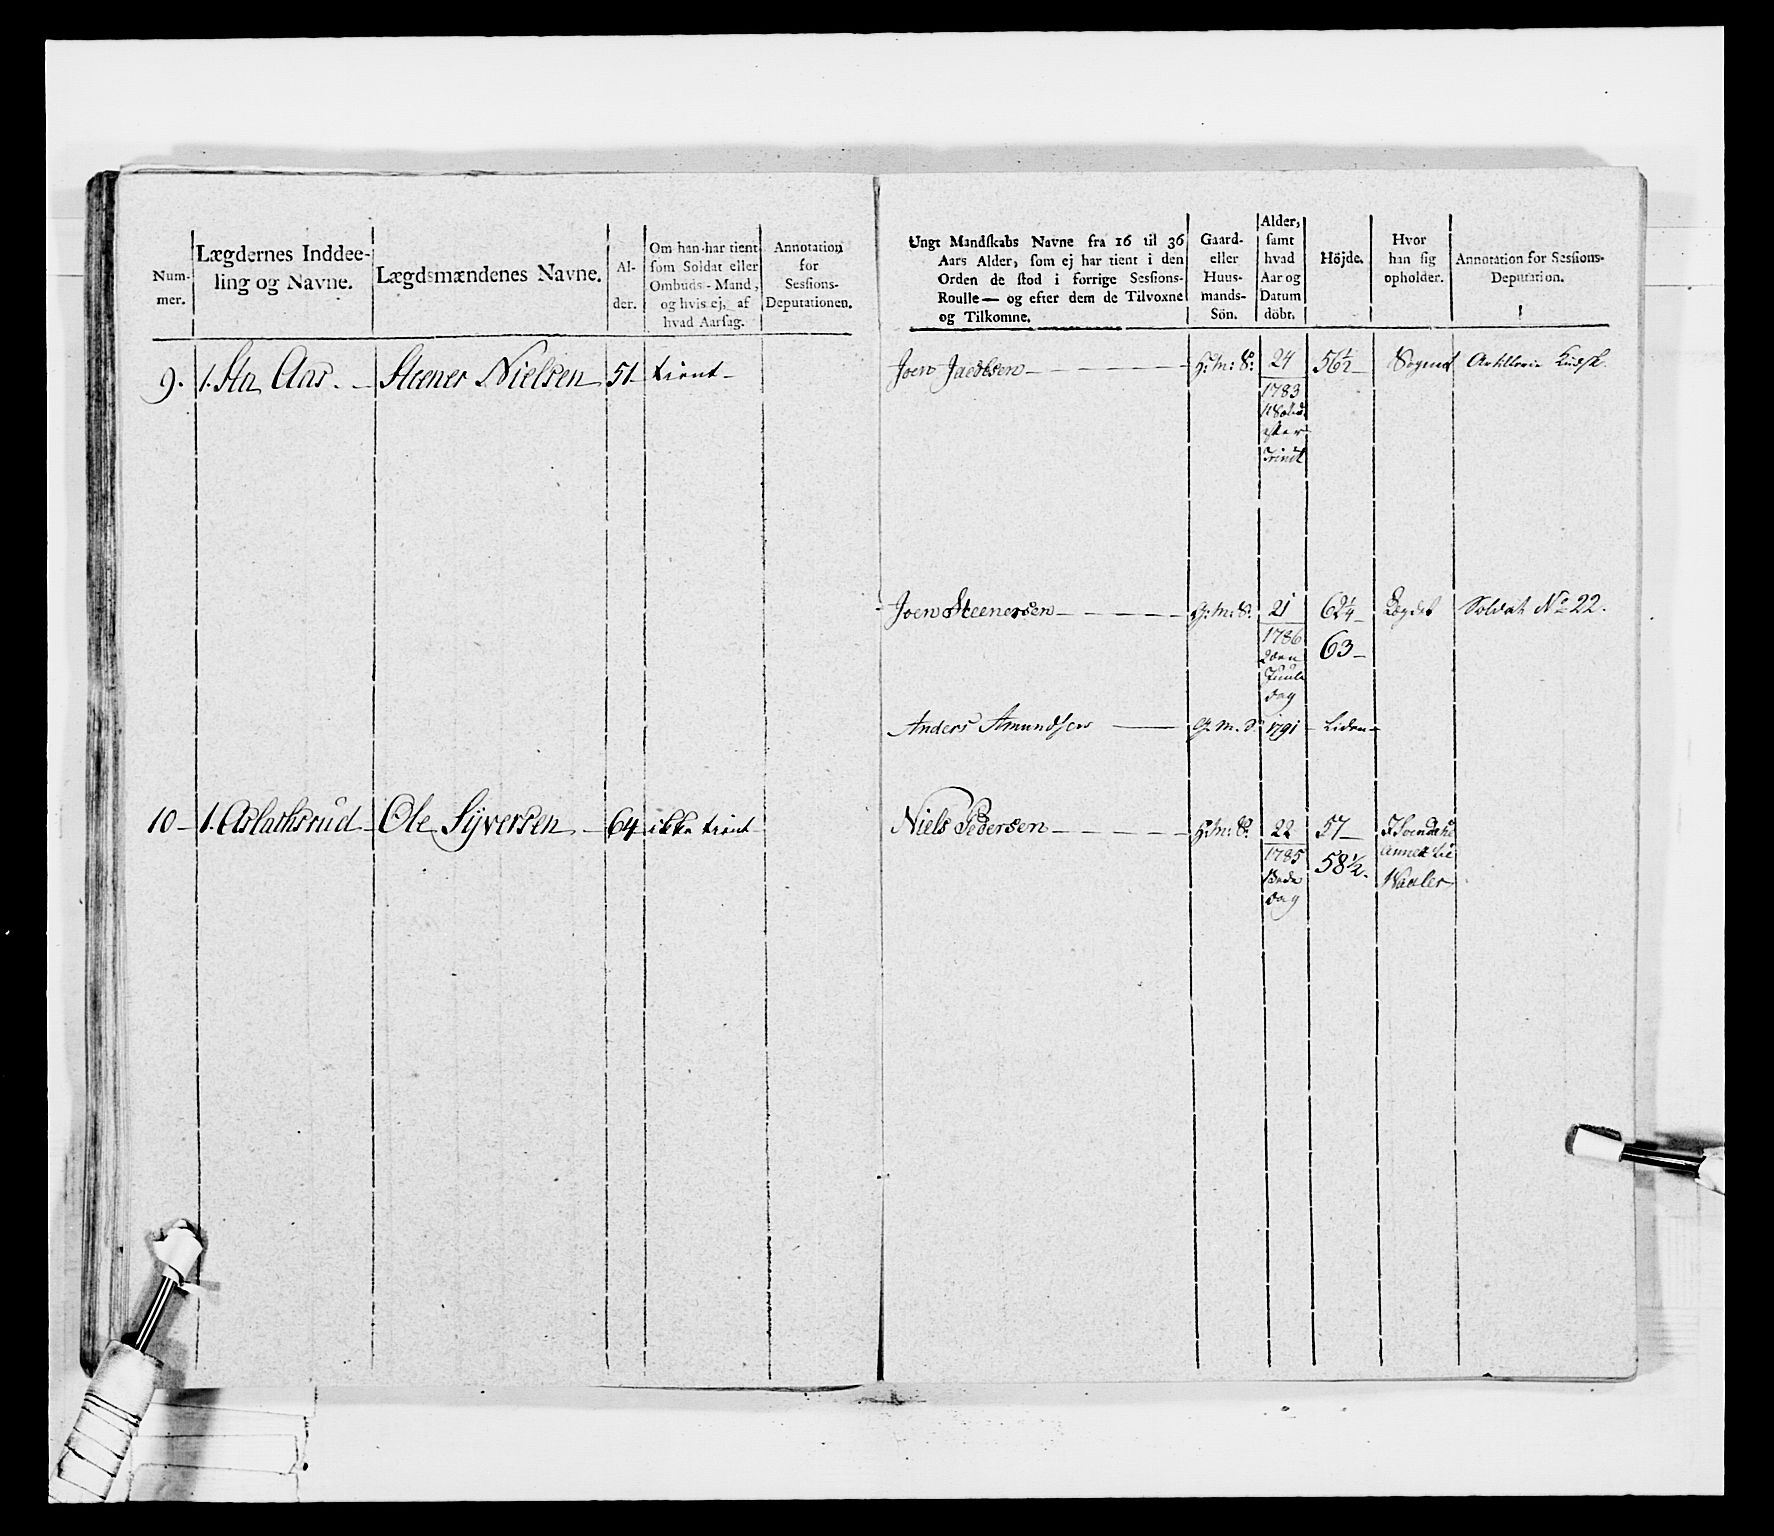 Num-
mer.
Lægdernes Inddee-
ling og Navne.
Lægdsmændenes Navne.
Al-
der.
Om han har tient
som Soldat eller
Ombuds-Mand,
og hvis ej, af
hvad Aarsag.
Annotation
for
Sessions-
Deputationen.
Ungt Mandskabs Navne fra 16 til 36
Aars Alder, som ej har tient i den
Orden de stod i forrige Sessions-
Roulle — og efter dem de Tilvoxne
og Tilkomne.
Gaard-
eller
Huus-
mands-
Sön.
Alder,
samt
hvad
Aar og
Datum
döbt.
Höjde.
Hvor
han sig
opholder.
Annotation for Sessions-
Deputation.
9. 1. Aas. — Steener Nielsen 51 tient —
Joen Jacobsen — H: m: S: 24 56½ — Sognet Artillerie Kudsk.
1783
efter
Trinit
Joen Steenersen — G: m: S: 21 62¼ — Lægdet Soldat No 22.
1786 63 —
2den
Juule
dag
Anders Amundsen — G. m. S 1791 — Liden —
10 — 1. Aslachsrud — Ole Syversen — 64 ikke tient —
Niels Pedersen — H: m: S: 22 57 —
1785 58½.
Bede
dag
Annex til
Waaler